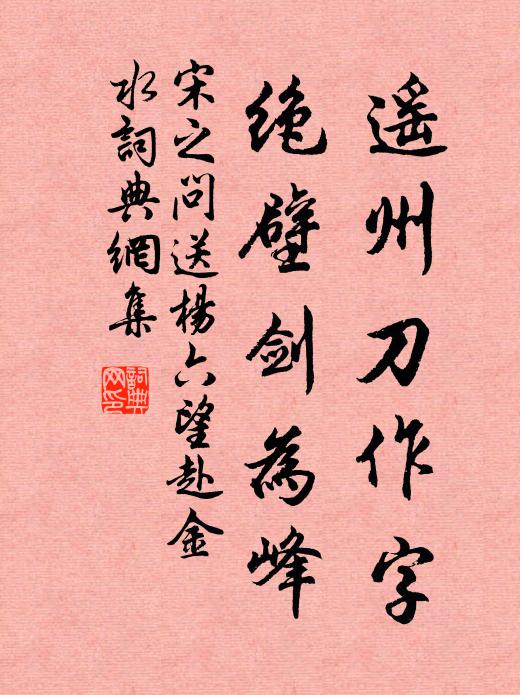 遥州刀作字
绝壁剑為峰
宋之问送楊六望赴金
水詞典網集
詞典
网印